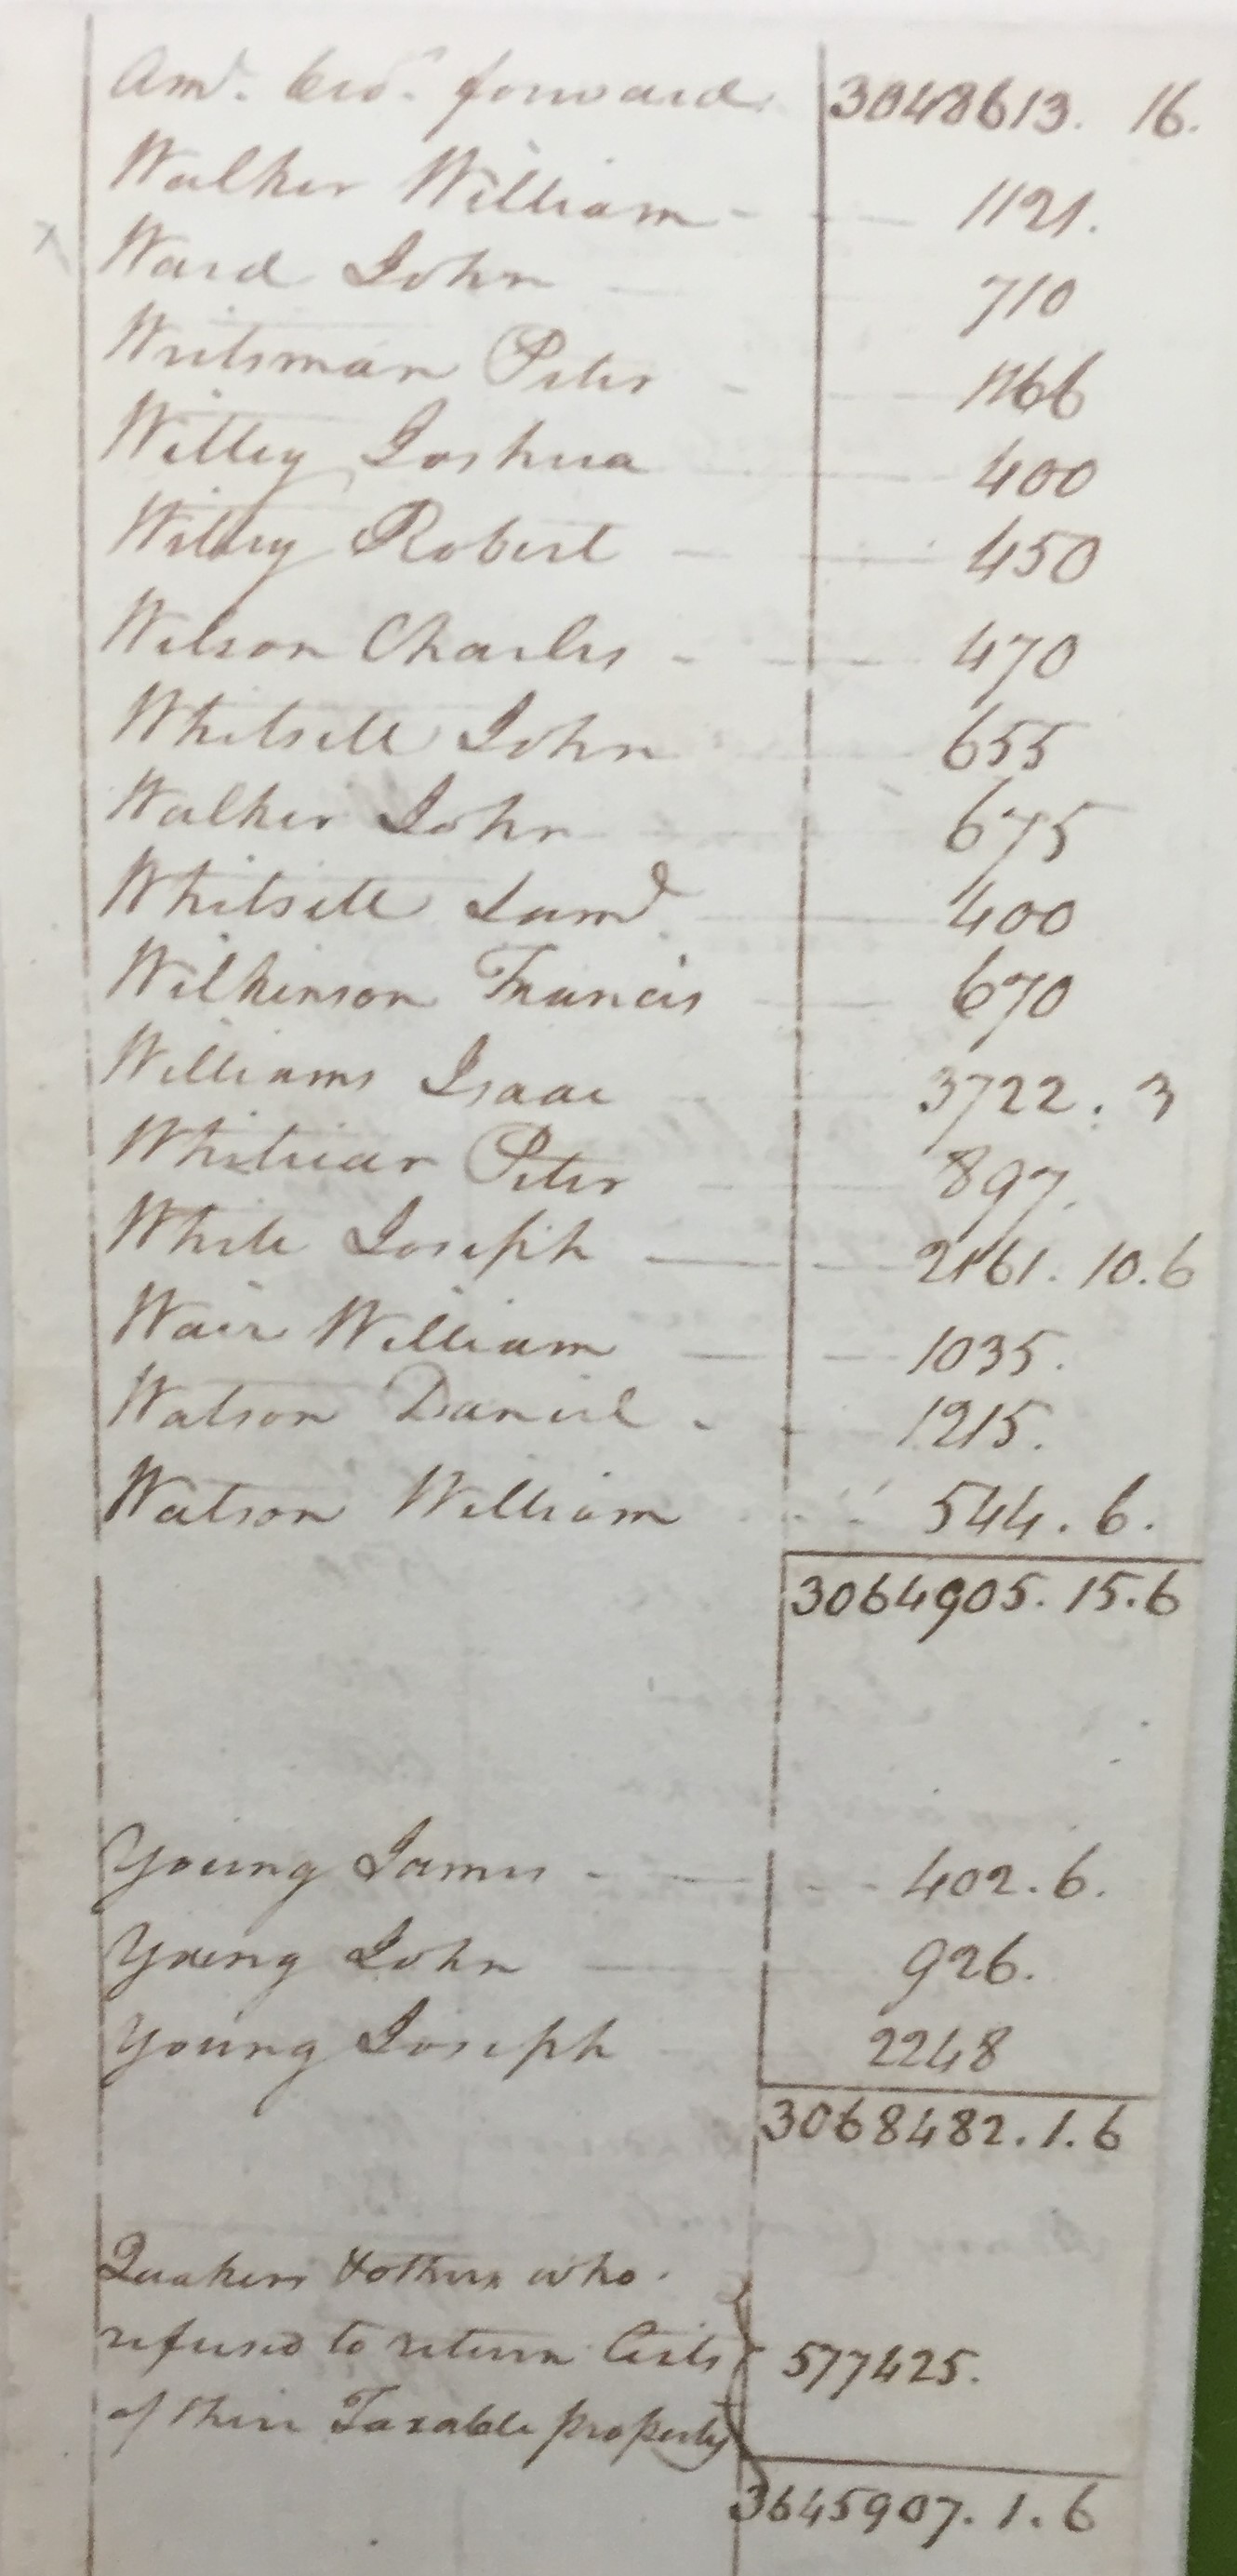 Amt. bro.t forward 3048613. 16.
Walker William - 1121.
x Ward John 710
Peter - 1166
Willey Joshua 400
Willey Robert - 450
Wilson Charles - 470
Whitsell John 655
Walker John 675
Whitsell Saml 400
Wilkinson Francis 670
Williams Isaac 3722. 3
Peter 897.
White Joseph — 2161. 10. 6
Wair William — 1035.
Watson Daniel - 1215.
Watson William 544. 6.
3064905. 15. 6
Young James - 402. 6.
Young John — 926.
Young Joseph 2248
3068482. 1. 6
Quakers & others who
refused to return Lists
of their Taxable property 577425.
3645907. 1. 6